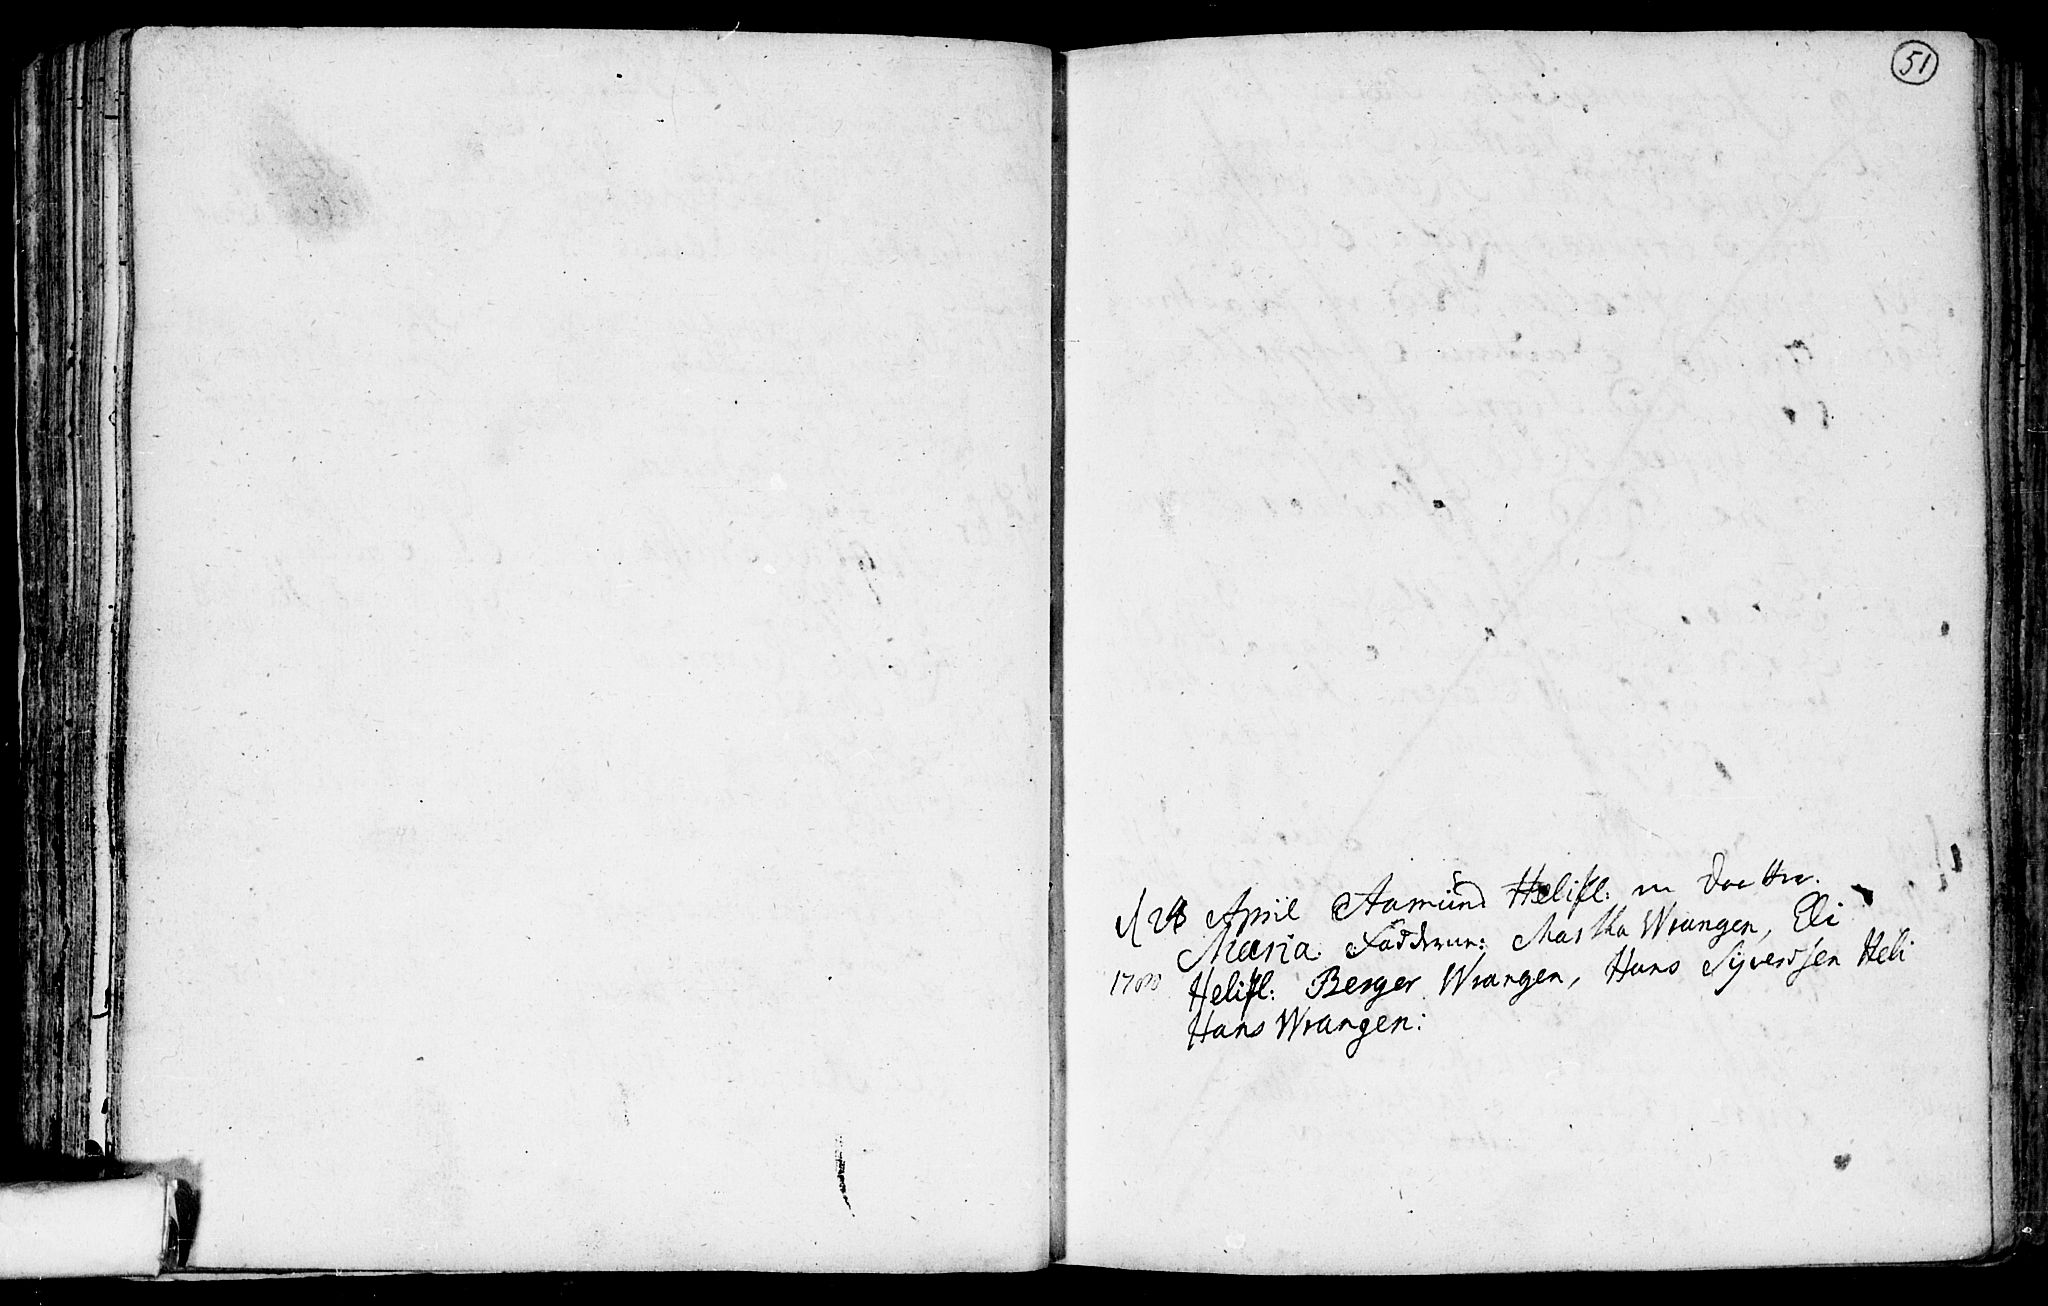 51
d 28 April Aamund Helisl: en Daatter
Maria. Fadderne: Martha Wrangen, Eli
1788 Helisl: Berger Wrangen, Hans Syversjen Heli
Hans Wrangen: